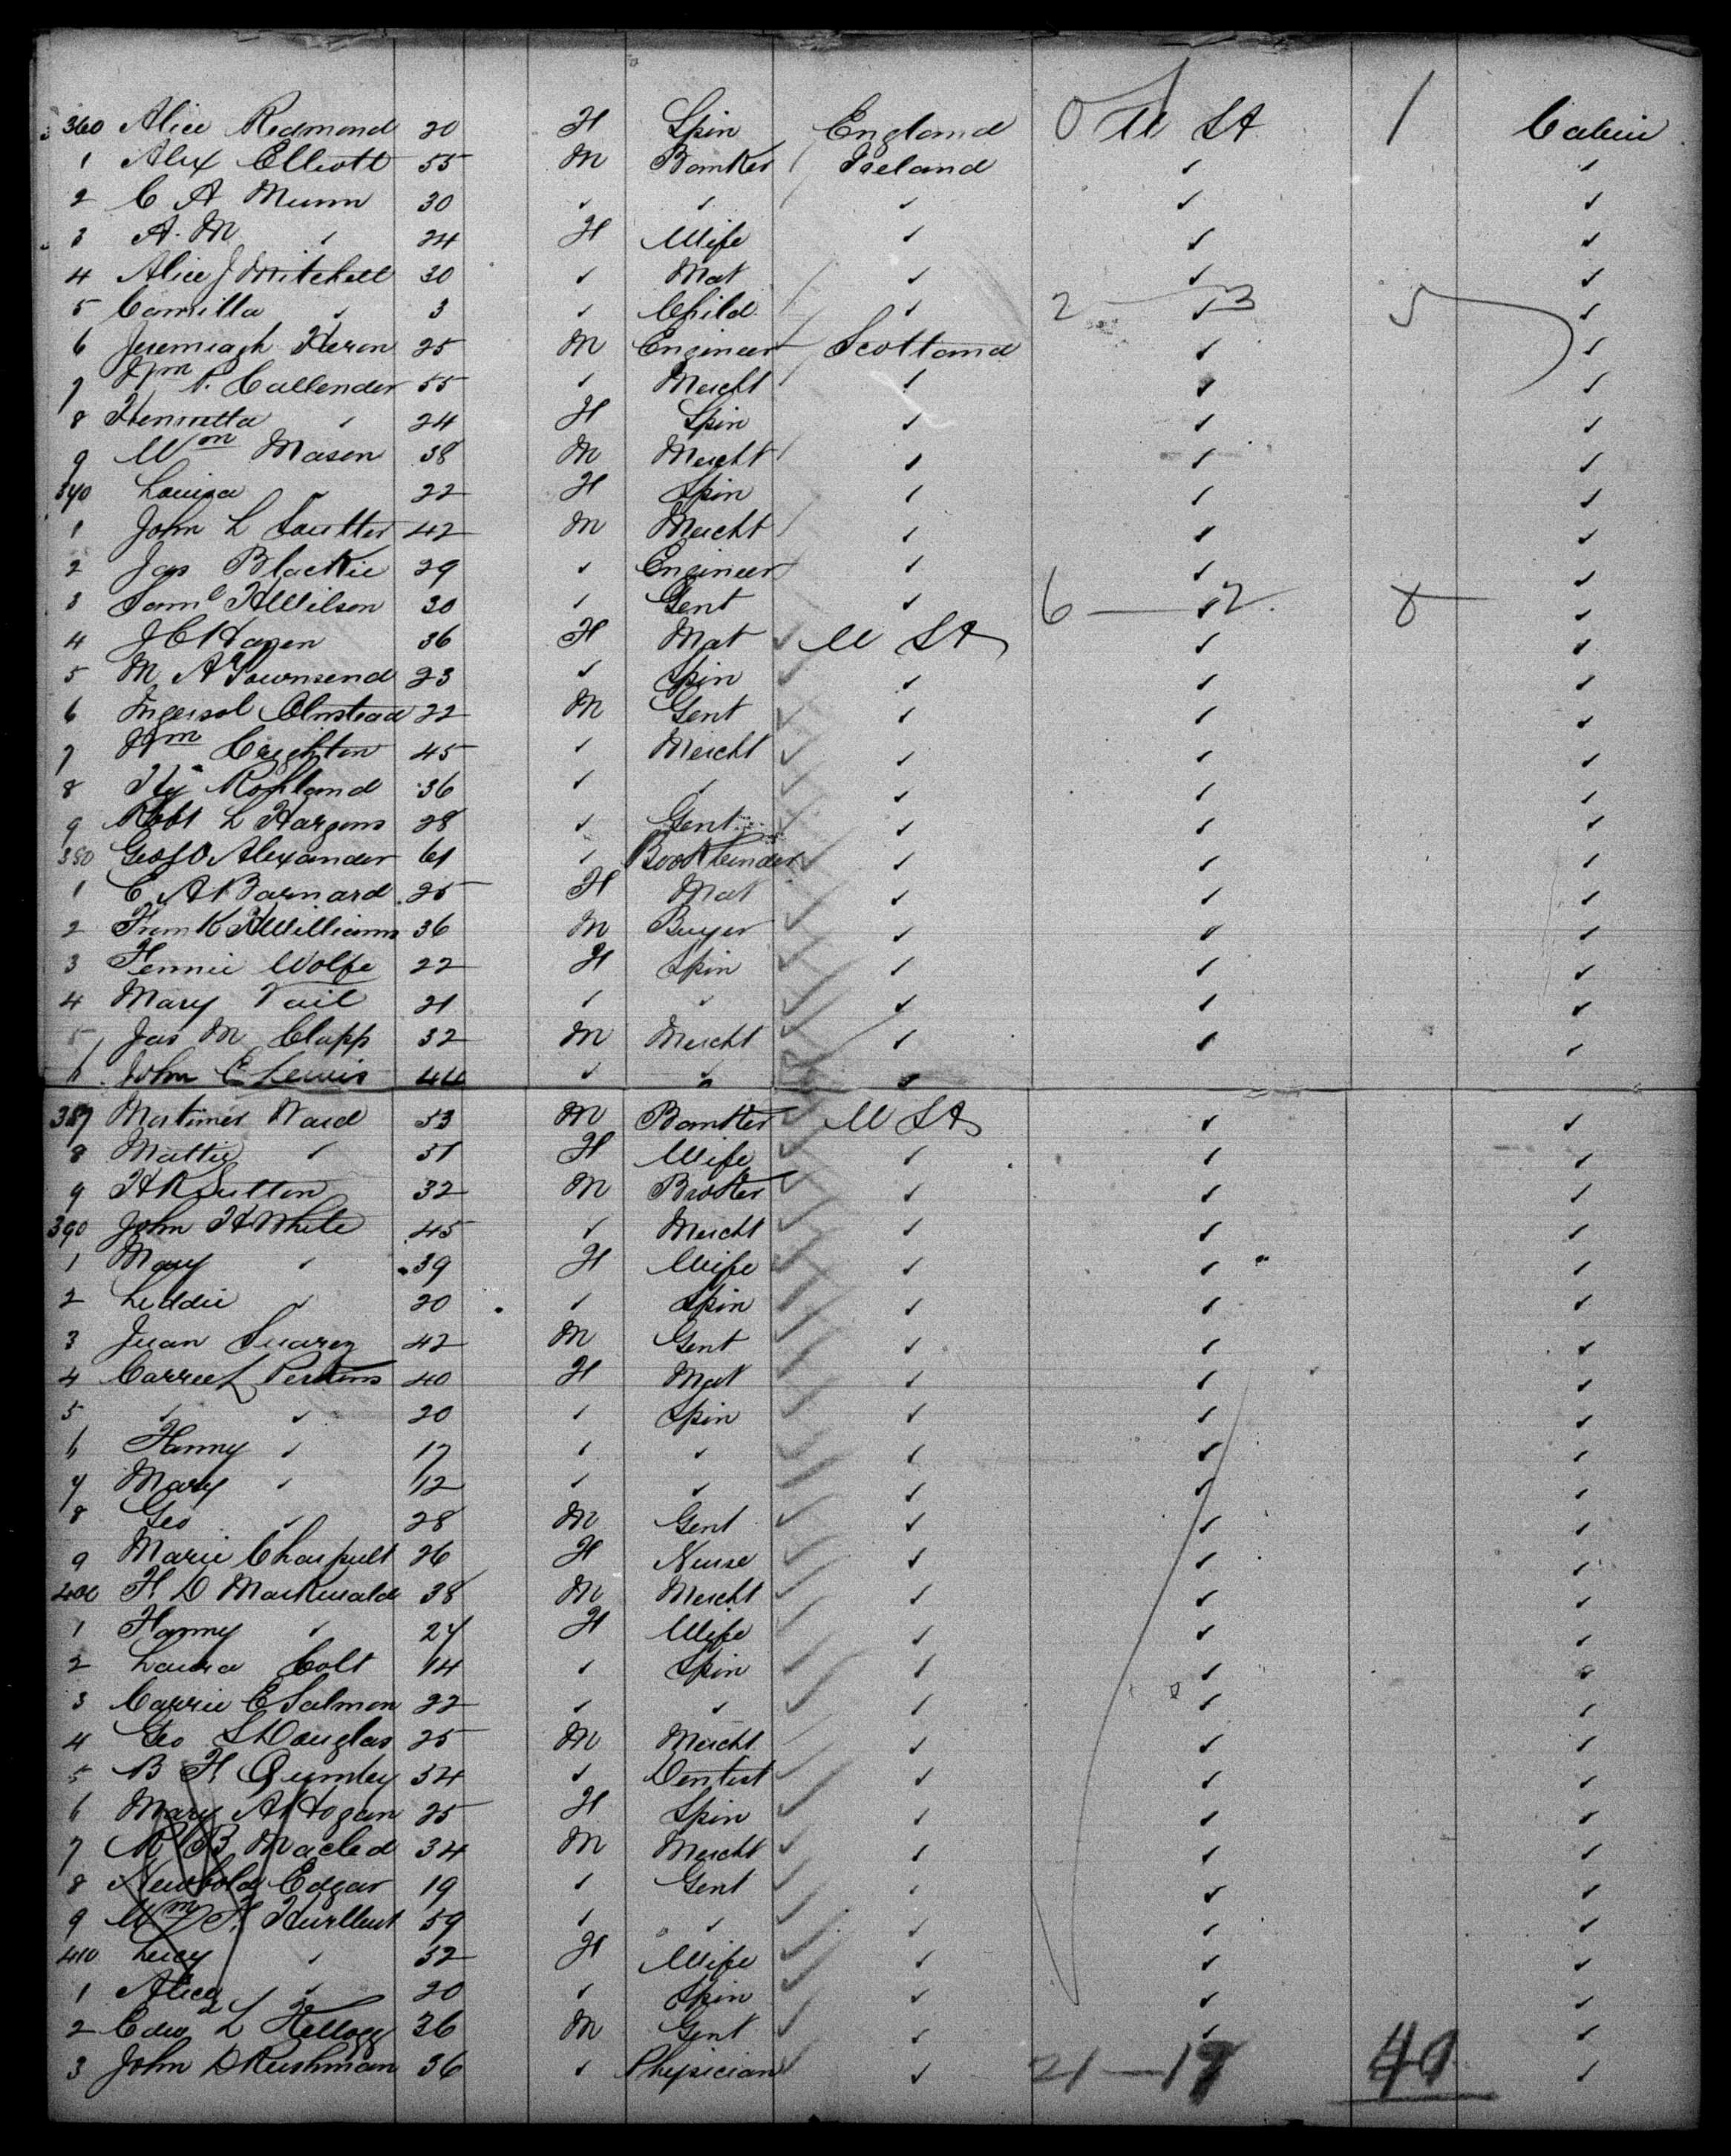 360 Alice Redmond 20 F Spin England U St 1 Cabin
1 Alex Elliott 55 M Banker Ireland ✓ ✓
2 C A Munn 30 ✓ ✓ ✓ ✓ ✓
3 A. M ✓ 24 F Wife ✓ ✓ ✓
4 Alice J Mitchell 30 ✓ Mat ✓ ✓ ✓
5 Camilla ✓ 3 ✓ Child ✓ 2 — 3 5 ✓
6 Jeremiagh Heron 25 M Engineer Scotland ✓ ✓
7 Wm R. Callender 55 ✓ Mercht ✓ ✓ ✓
8 Henrietta ✓ 24 F Spin ✓ ✓ ✓
9 Wm Mason 38 M Mercht ✓ ✓ ✓
370 Louisa ✓ 22 F Spin ✓ ✓ ✓
1 John L Soutter 42 M Mercht ✓ ✓ ✓
2 Jas Blackie 29 ✓ Engineer ✓ ✓ ✓
3 Saml H Wilson 30 ✓ Gent ✓ 6 — 2 8 ✓
4 J C Hazen 36 F Mat U St ✓ ✓
5 M A Townsend 23 ✓ Spin ✓ ✓ ✓
6 Ingersol Olmstead 22 M Gent ✓ ✓ ✓
7 Wm Creighton 45 ✓ Mercht ✓ ✓ ✓
8 Hy Rowland 36 ✓ ✓ ✓ ✓ ✓
9 Robt L Hargons 28 ✓ Gent ✓ ✓ ✓
380 Geo Alexander 61 ✓ Bookbinder ✓ ✓ ✓
1 C A Barnard 25 F Mat ✓ ✓ ✓
2 Frank H Williams 36 M Buyer ✓ ✓ ✓
3 Fennie Wolfe 22 F Spin ✓ ✓ ✓
4 Mary Vail 21 ✓ ✓ ✓ ✓ ✓
5 Jas M Clapp 32 M Mercht ✓ ✓ ✓
6 John E Lewis 44 ✓ ✓ ✓
387 Mortimer Ward 53 M Banker U St ✓ ✓
8 Mattie ✓ 51 F Wife ✓ ✓ ✓
9 H R Sutton 32 M Broker ✓ ✓ ✓
390 John H White 45 ✓ Mercht ✓ ✓ ✓
1 Mary ✓ 39 F Wife ✓ ✓ ✓
2 Liddie ✓ 20 ✓ Spin ✓ ✓ ✓
3 Juan Suarez 42 M Gent ✓ ✓ ✓
4 Carrie L Perkins 40 F Mat ✓ ✓ ✓
5 ✓ ✓ 20 ✓ Spin ✓ ✓ ✓
6 Fanny ✓ 17 ✓ ✓ ✓ ✓ ✓
7 Mary ✓ 12 ✓ ✓ ✓ ✓ ✓
8 Geo ✓ 28 M Gent ✓ ✓ ✓
9 Marie 26 F Nurse ✓ ✓ ✓
400 F. D Markwald 38 M Mercht ✓ ✓ ✓
1 Fanny ✓ 27 F Wife ✓ ✓ ✓
2 Laura Colt 14 ✓ Spin ✓ ✓ ✓
3 Carrie E Salmon 22 ✓ ✓ ✓ ✓ ✓
4 Geo S Douglas 25 M Mercht ✓ ✓ ✓
5 B F. Quimby 34 ✓ Dentist ✓ ✓ ✓
6 Mary A Hogan 25 F Spin ✓ ✓ ✓
7 R B Macled 34 M Mercht ✓ ✓ ✓
8 Newbold Edgar 19 ✓ Gent ✓ ✓ ✓
9 Wm F. Hurlbut 59 ✓ ✓ ✓ ✓ ✓
410 Lucy ✓ 32 F Wife ✓ ✓ ✓
1 Alice ✓ 20 ✓ Spin ✓ ✓ ✓
2 Edwd L Kellogg 36 M Gent ✓ ✓ ✓
3 John D Rushman 36 ✓ Physician ✓ 21 — 19 40 ✓